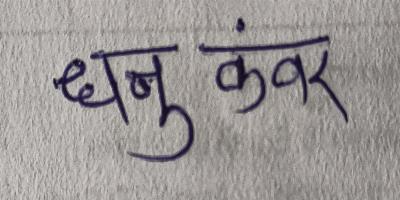 धनु कंवर